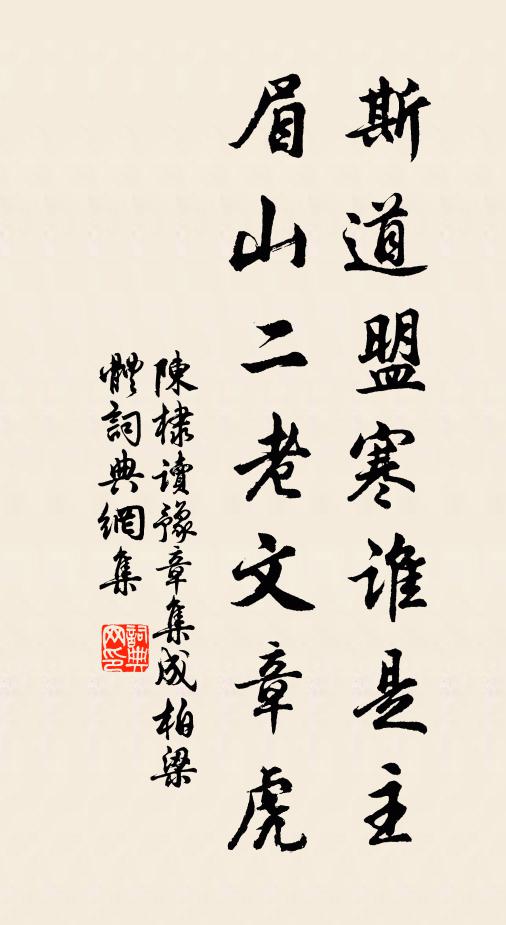 斯道盟寒谁是主
眉山二老文章虎
陳棣读豫章集成柏梁
體詞典網集
詞典
网印